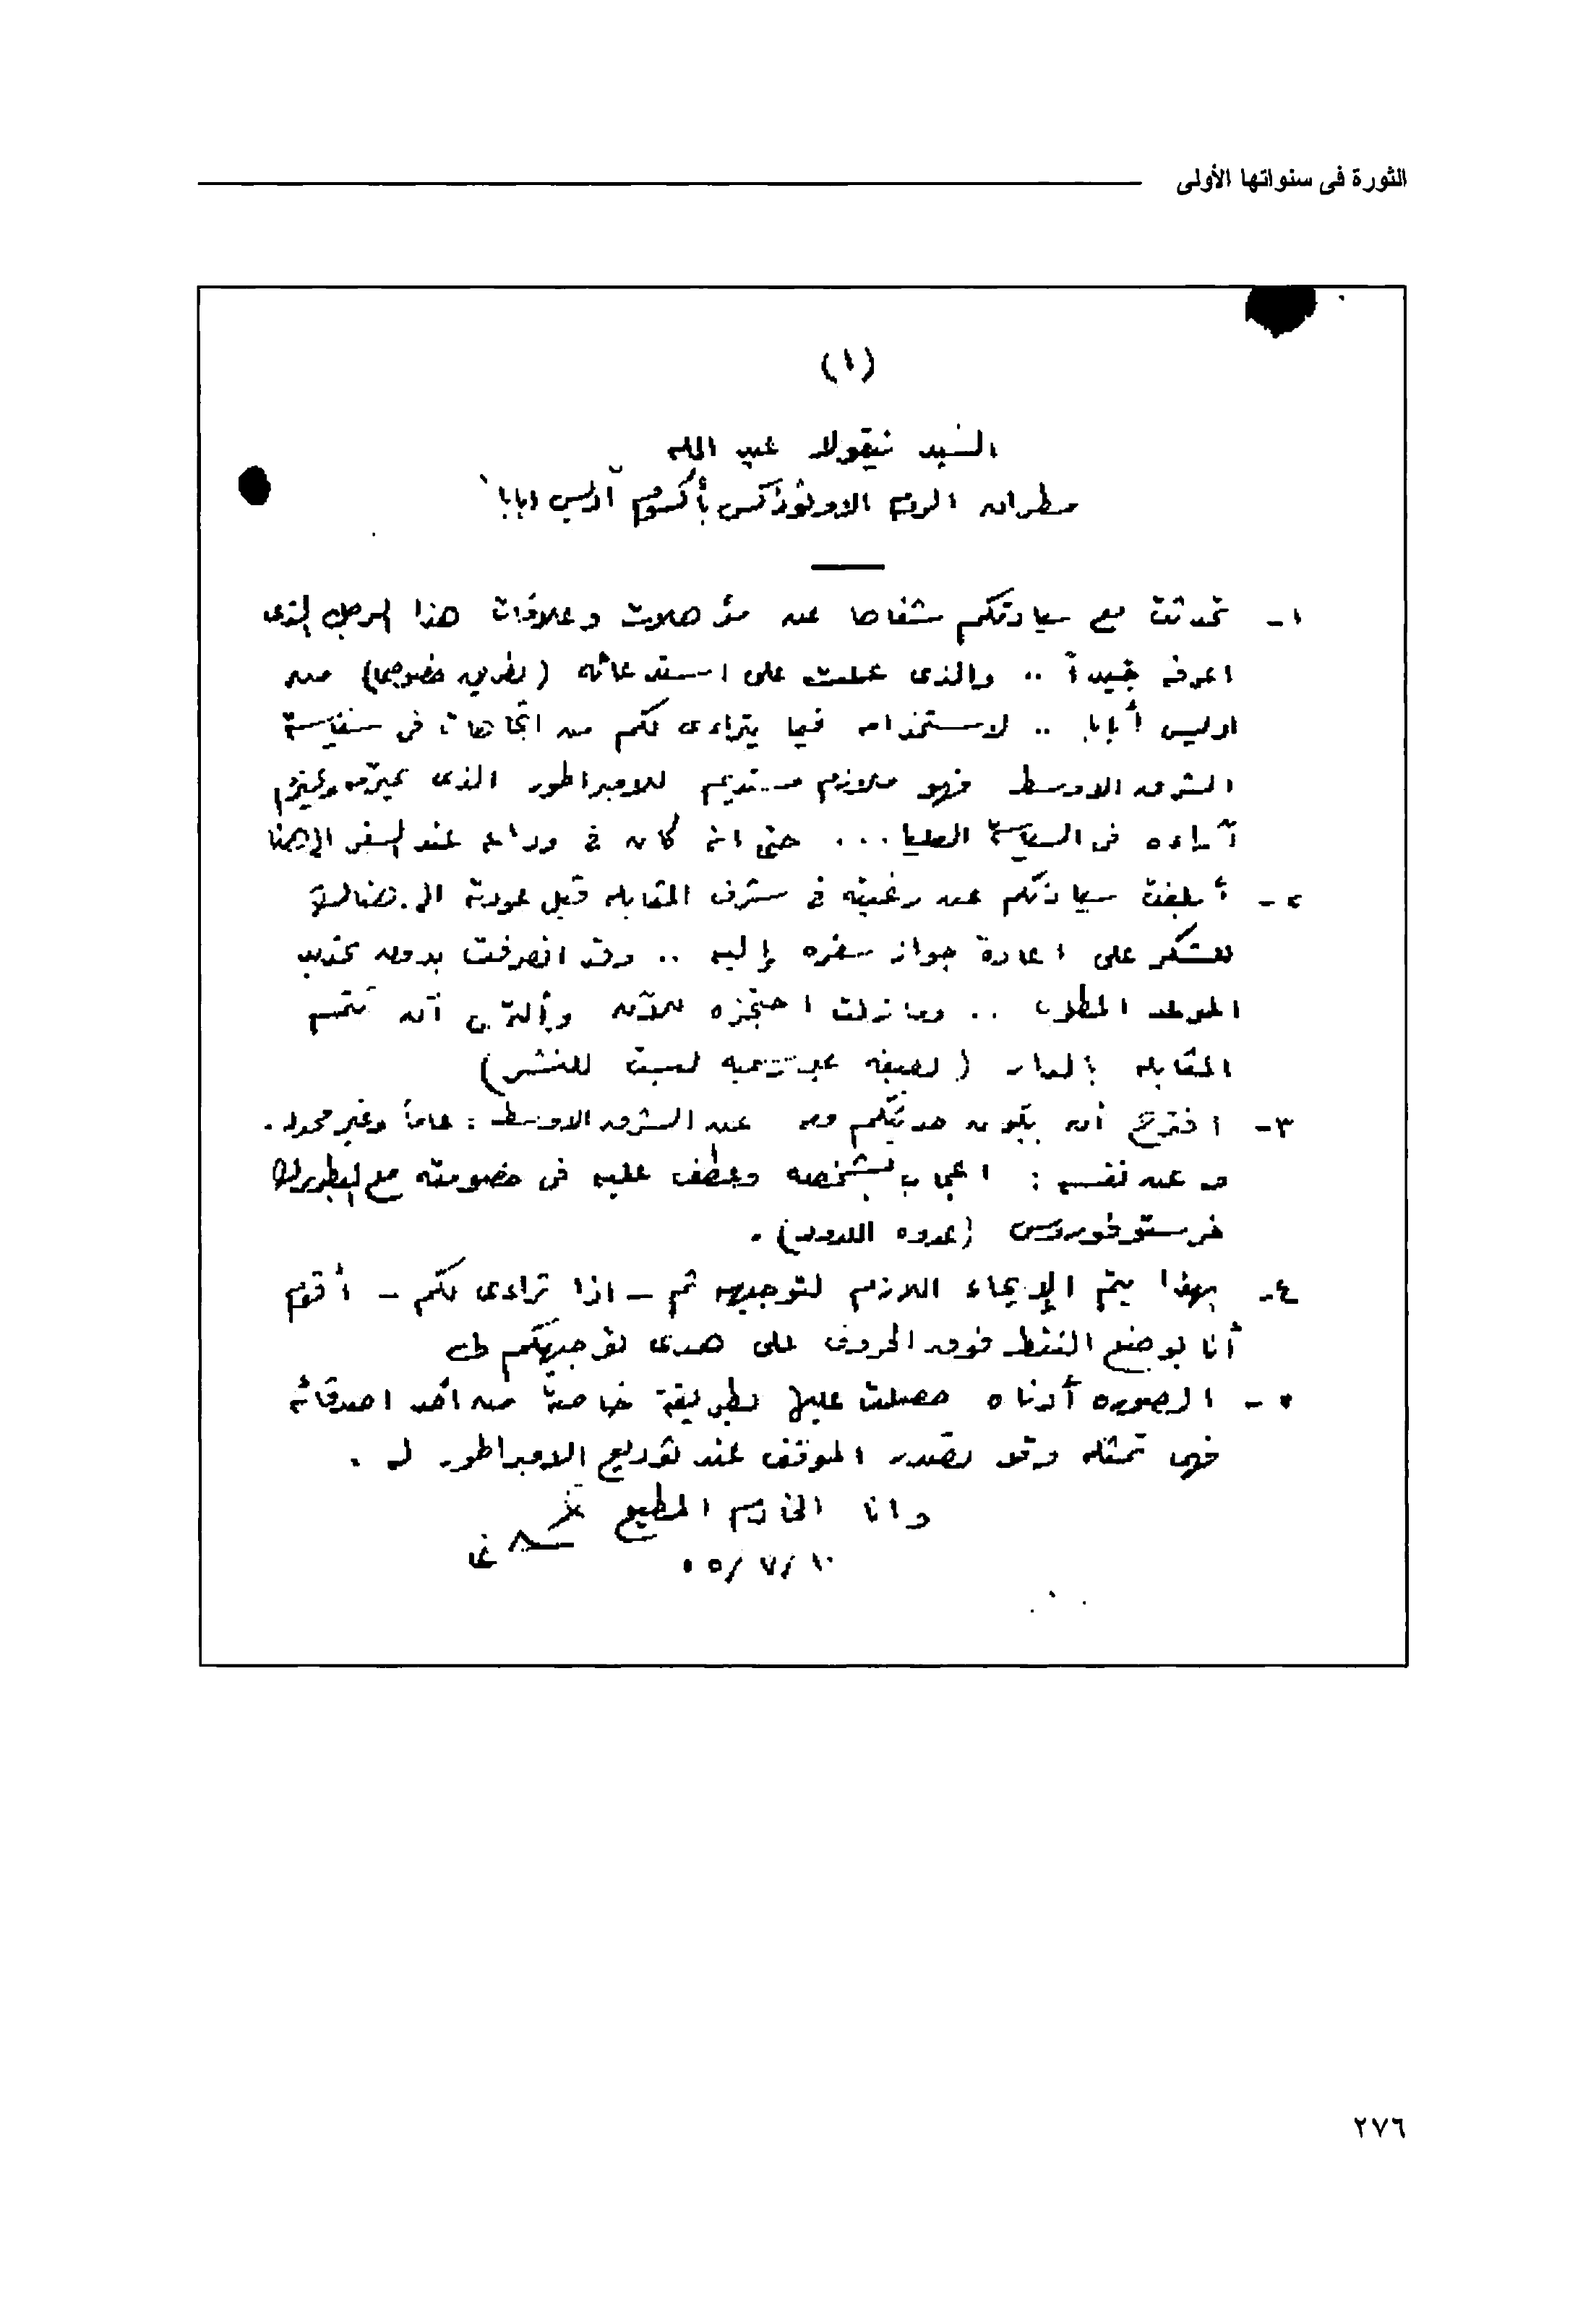 الثورة فى سنواتها الأولى
(١)
السيد نيقولا عبد الله
مطران الروم الاورثوذكس بأكسوم أديس ابابا
١- تحدثت مع سيادتكم شفاها عن مؤهلات وعلاقات هذا الرجل الذى
اعرفه جيداً .. والذى عملت على استدعائه (بطريق خصوصى) من
اديس أبابا .. لاستخدامه فيما يتراءى لكم من اتجاهات فى سياسة
الشرق الاوسط فهو ملازم مستديم للامبراطور الذى يحترمه ويحترم
آراءه فى السياسة العليا ... حتى انه كان فى وداعه عند السفر الى هنا
٢- أبلغت سيادتكم عن رغبته فى شرف المقابلة قبل عودته الى
للشكر على اعادة جواز سفره إليه .. وقد انصرفت بدون تحديد
الموعد المطلوب .. وما زلت احتجزه للآن وألتمس أن تتم
المقابلة (بصيغة ليست للنشر)
٣- اقترح أن يكون حديثكم عن الشرق الاوسط : عاماً وغير محدود .
و عن نفسه : اعجاب بشخصه وعطف عليه فى خصومته مع البطريرك
خرستوفورس (عدوه اللدود) .
٤- بهذا يتم الإيحاء اللازم لتوجيهه ثم – اذا تراءى لكم – أقوم
أنا بوضع النقط فوق الحروف على هدى توجيهكم
٥- الصورة أدناه حصلت عليها بطريقة خاصة من أحد اصدقائه
فهى تمثله وقد تصدر الموقف عند توديع الامبراطور له .
وانا الخادم المطيع
١٠/٧/٥
٢٧٦